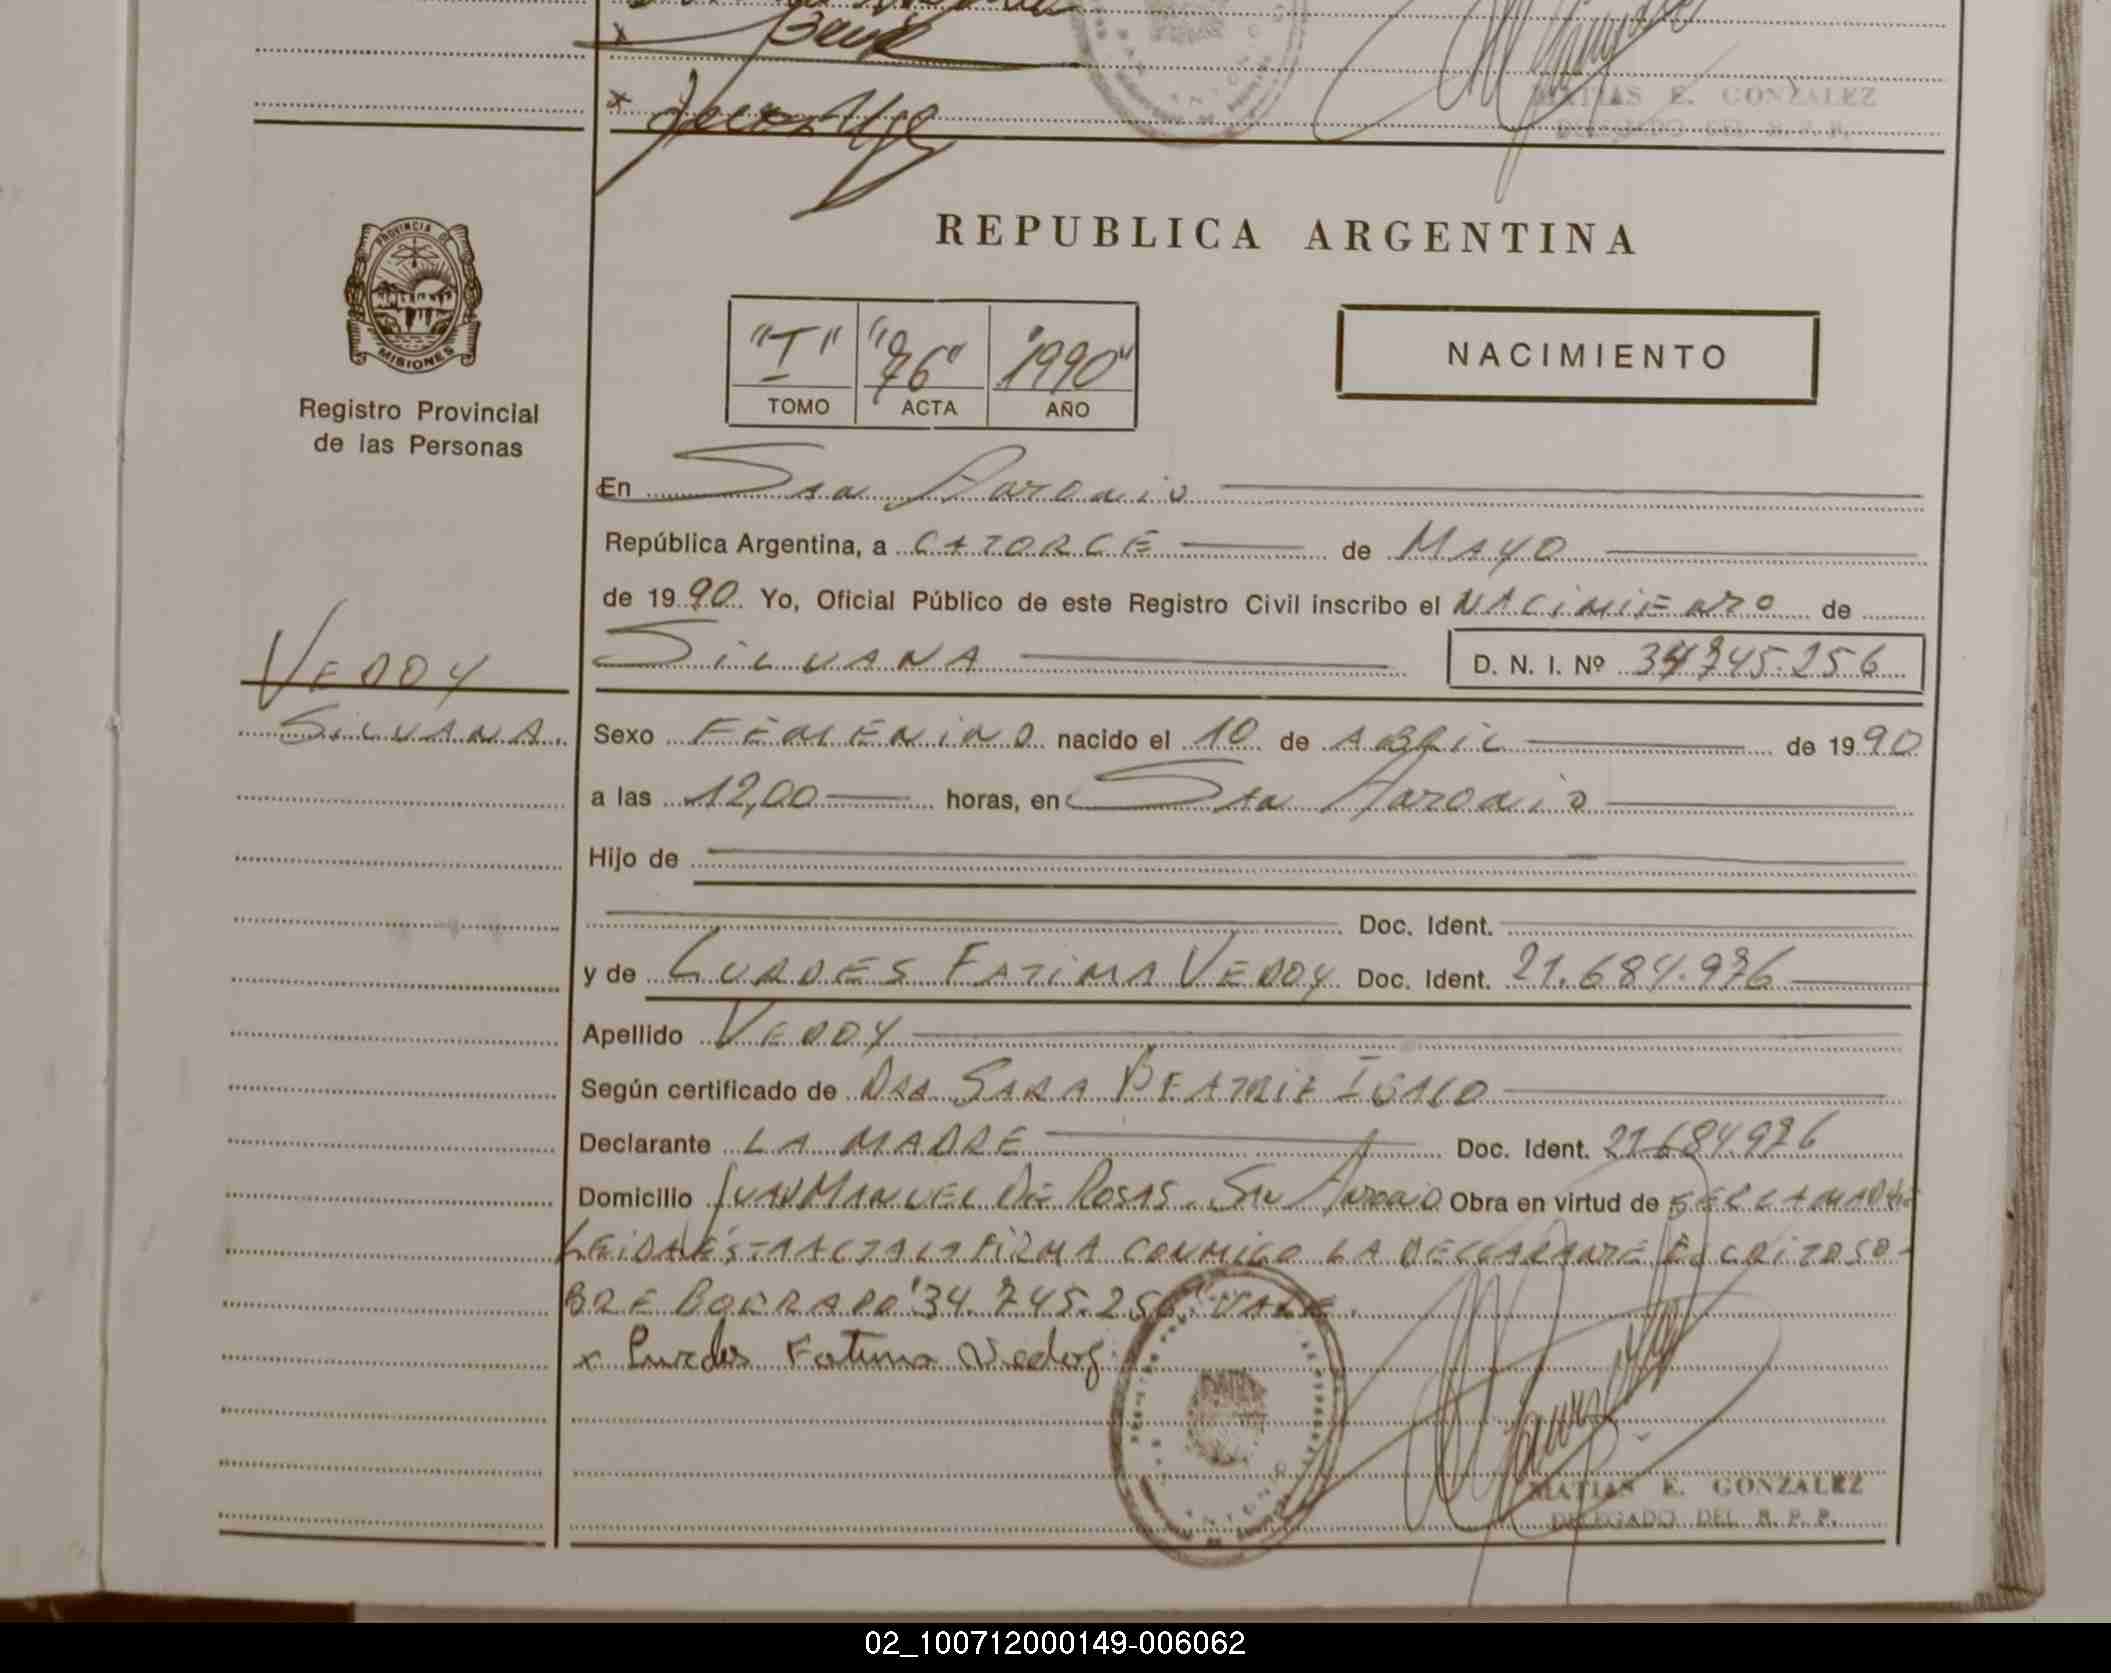 MATIAS E. GONZALEZ
DELEGADO DEL R. P. P.
PROVINCIA DE
MISIONES
Registro Provincial
de las Personas
REPUBLICA ARGENTINA
"I" "76" "1990"
TOMO ACTA AÑO
NACIMIENTO
En San Antonio
República Argentina, a CATORCE de MAYO
de 1990. Yo, Oficial Público de este Registro Civil inscribo el NACIMIENTO de
SILVANA D. N. I. Nº 34.745.256
VEDOY
SILVANA.
Sexo FEMENINO nacido el 10 de ABRIL de 1990
a las 12,00 horas, en San Antonio
Hijo de
Doc. Ident.
y de LURDES FATIMA VEDOY Doc. Ident. 21.684.976
Apellido VEDOY
Según certificado de DRA SARA BEATRIZ
Declarante LA MADRE Doc. Ident. 21.684.976
Domicilio JUAN MANUEL DE ROSAS. SAN ANTONIO Obra en virtud de SER LA MADRE
LEIDA ESTA ACTA LA FIRMA CONMIGO LA DECLARANTE ESCRITO SO-
BRE BORRADO "34.745.256" VALE.
x Lurdes Fatima Vedoy
MATIAS E. GONZALEZ
DELEGADO DEL R. P. P.
02_100712000149-006062